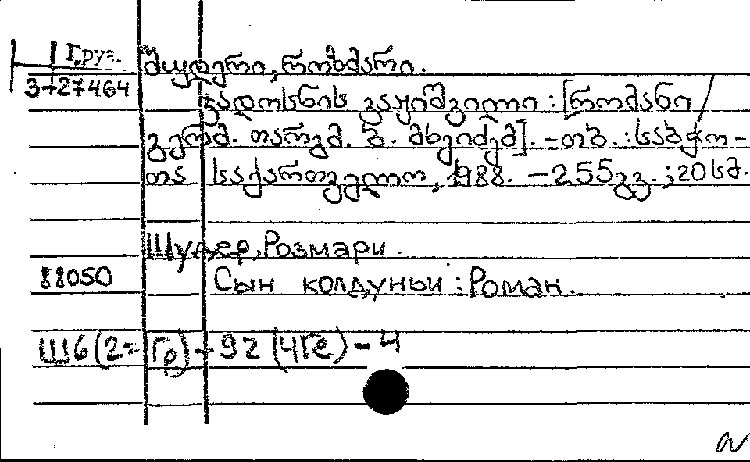 Груз. შუდერი, როზმარი.
3-27464
ჯადოსნის ვაჟიშვილი : [რომანი /
გერმ. თარგმ. ზ. მხეიძემ]. - თბ. : საბჭო-
თა საქართველო, 1988. - 255გვ. ; 20 სმ.
Шудер, Розмари.
88050 Сын колдуньи : Роман.
Ш6(2=Гр)-92(4Ге)-4